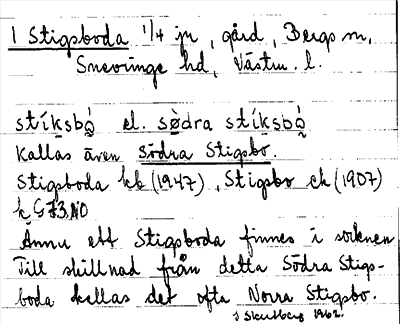 1 Stigsboda 1/4 jr, gård, Bergs sn,
Snevringe hd, Västm. l.
stíksbò̰ el. sø̀dra stíksbò̰
Kallas även Södra Stigsbo.
Stigsboda kb (1947), Stigsbo ch (1907)
k G73NO
Ännu ett Stigsboda finnes i socknen
Till skillnad från detta Södra Stigs-
boda kallas det ofta Norra Stigsbo.
1962.